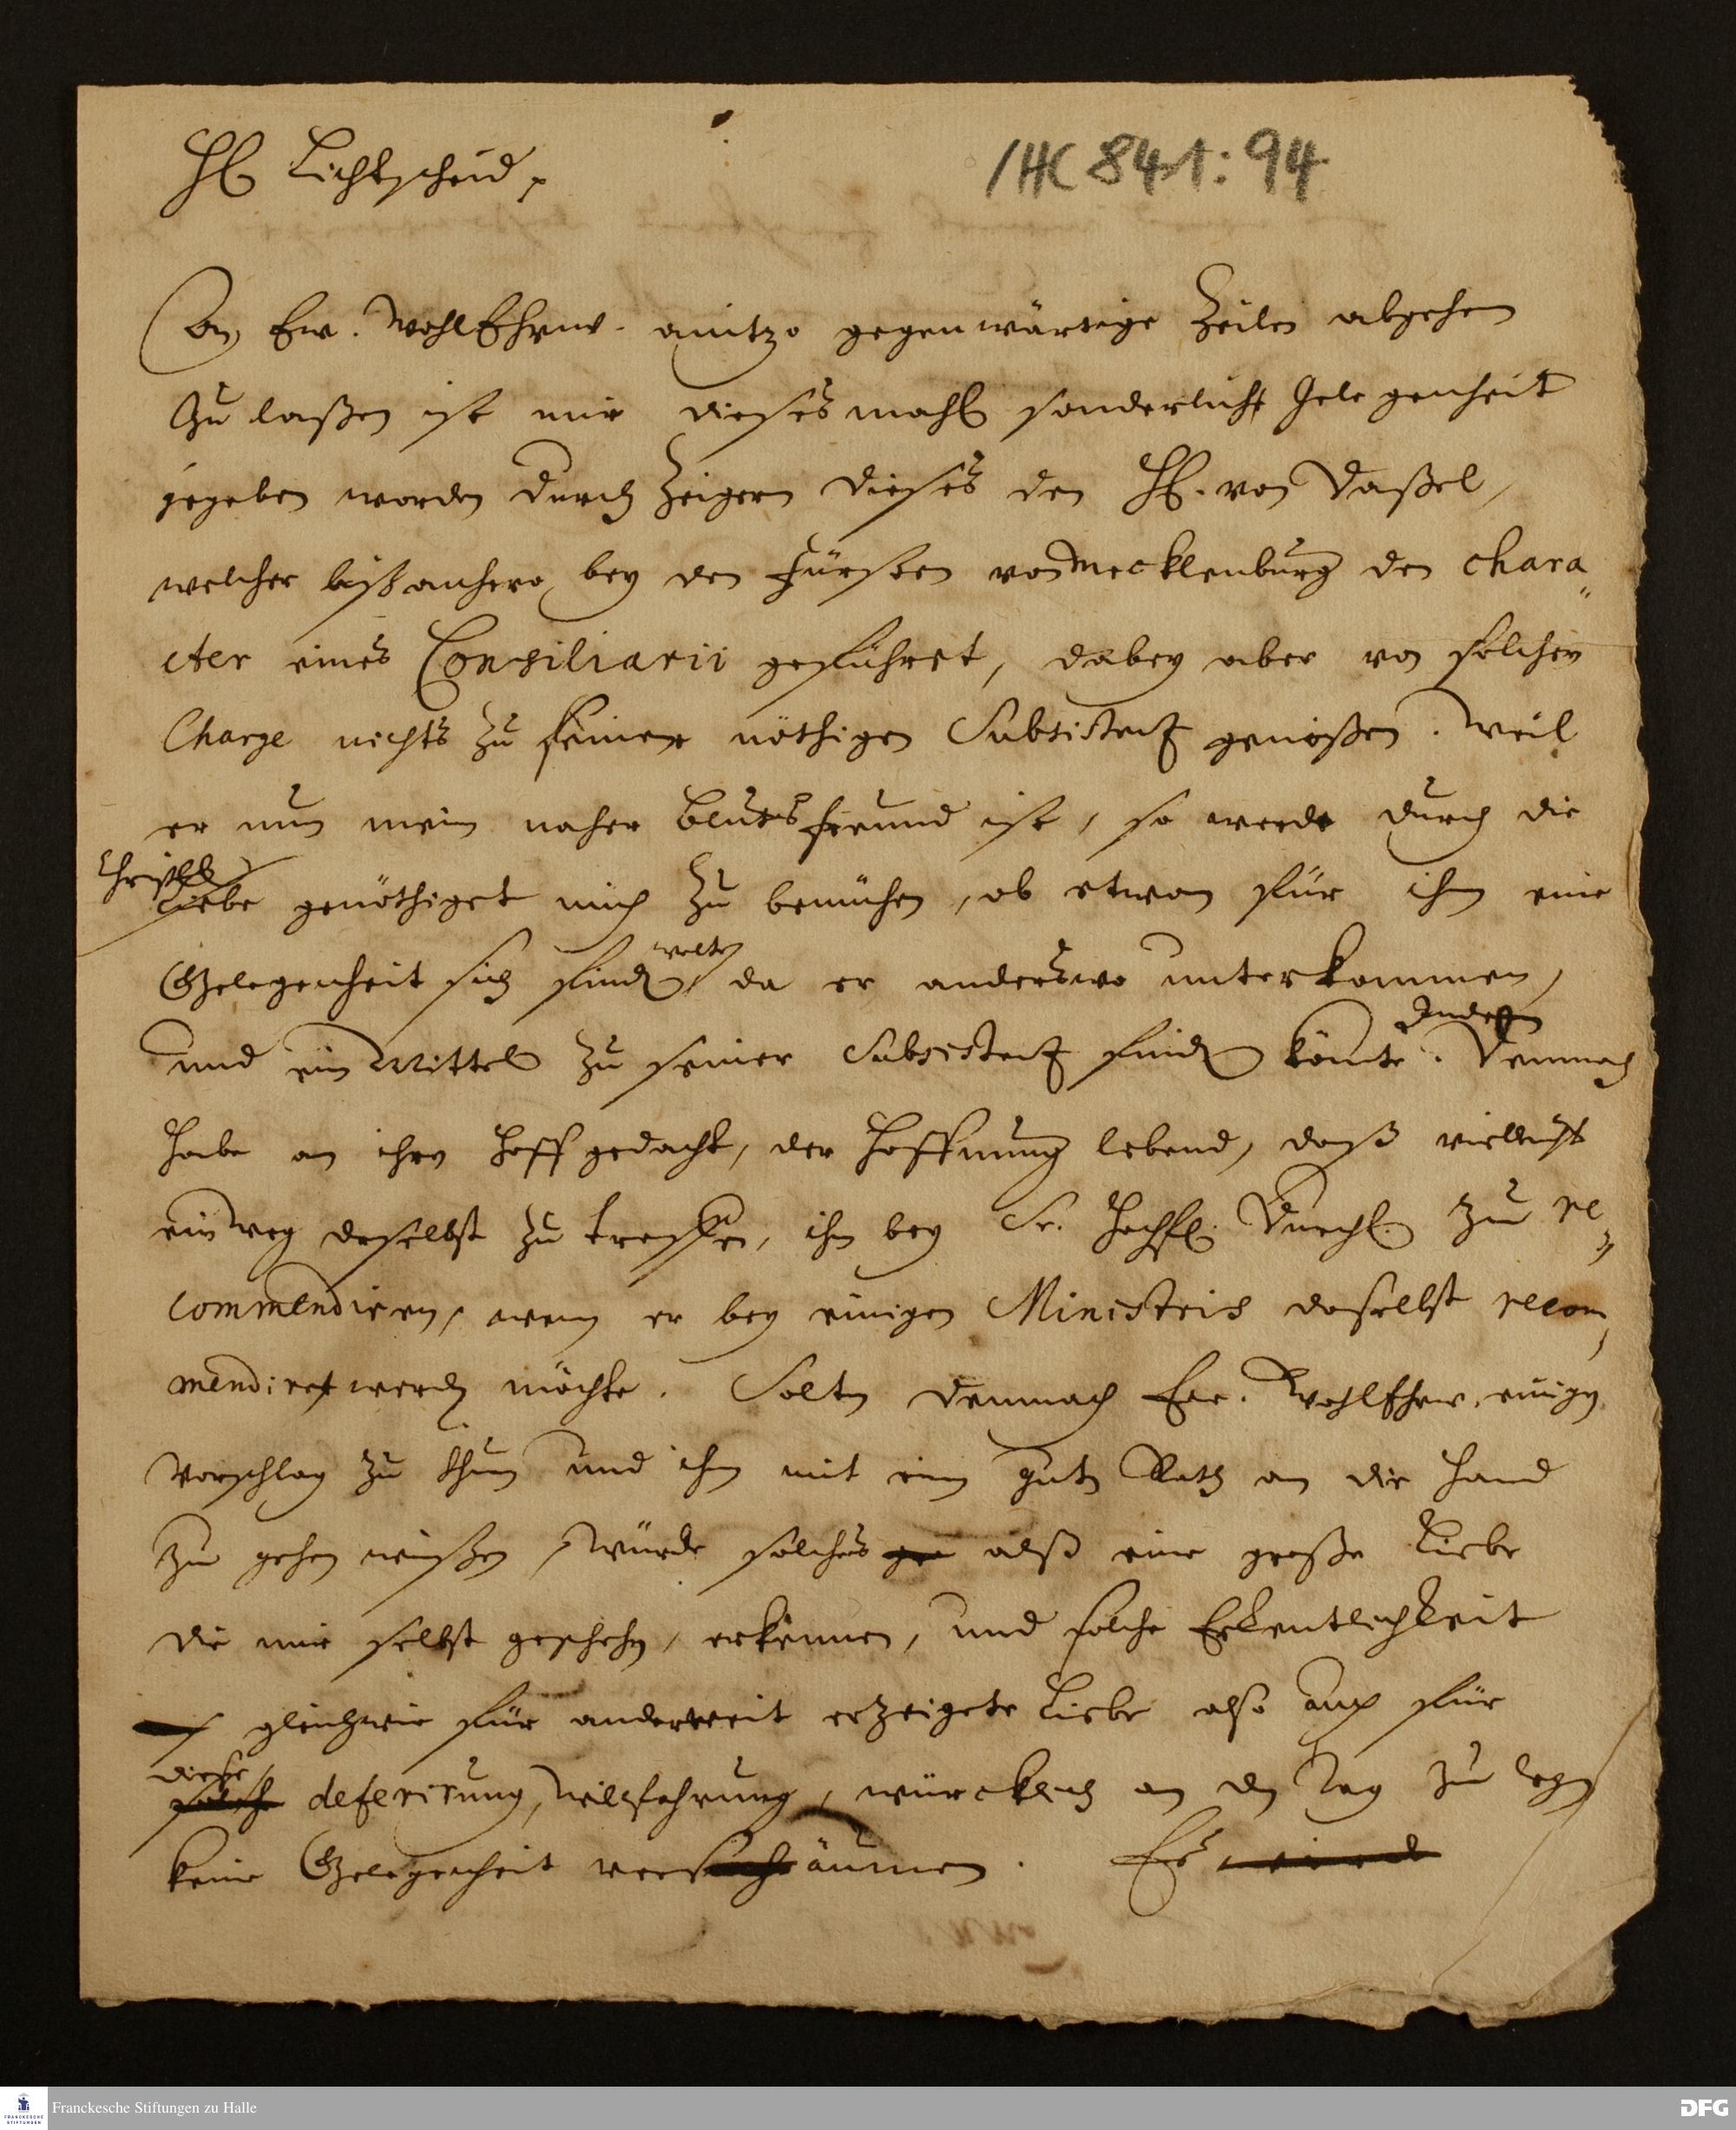 H. Lichtscheid.
/HC 84st: 94
An Ew. WohlEhrw. anitzo gegenwärtige Zeilen abgehen
zu laßen ist mir dieses mahl sonderlich Gelegenheit
gegeben worden durch Zeigern dieses den H. von Daßel,
welcher bißanhero bey den Fürsten von Mecklenburg den chara
cter eines Consiliarii geführet, dabey aber von solcher
Charge nichts zu seiner nöthigen Subsistentz genoßen. Weil
er nun mein naher Blutsfreund ist, so werde durch die
Christl.
Liebe genöthiget mich zu bemühen, ob etwan für ihn eine
Gelegenheit sich finden wolte da er anderswo unterkommen,
und ein Mittel zu seiner Subsistentz finden könte. Demnach
habe an ihren Hoff gedacht, der Hoffnung lebend, daß vielleicht
ein weg daselbst zu treffen, ihn bey Sr. Hochfl. Durchl. zu re
commendiren, wenn er bey einigen Ministris daselbst recom
mendiret werden möchte. Solten demnach Ew. WohlEhrw. einigen
Vorschlag zu thun und ihm mit einem guten Rath an die Hand
zu gehen wißen, würde solches alß eine große Liebe
die mir selbst geschehen, erkennen, und solche Erkentlichkeit
gleichwie für anderweit erzeigete Liebe also auch für
diese
solche deferirung, Willfahrung, würcklich an den Tag zu legen
keine Gelegenheit versäumen. Es wird
Franckesche Stiftungen zu Halle
FRANCKESCHE STIFTUNGEN
DFG